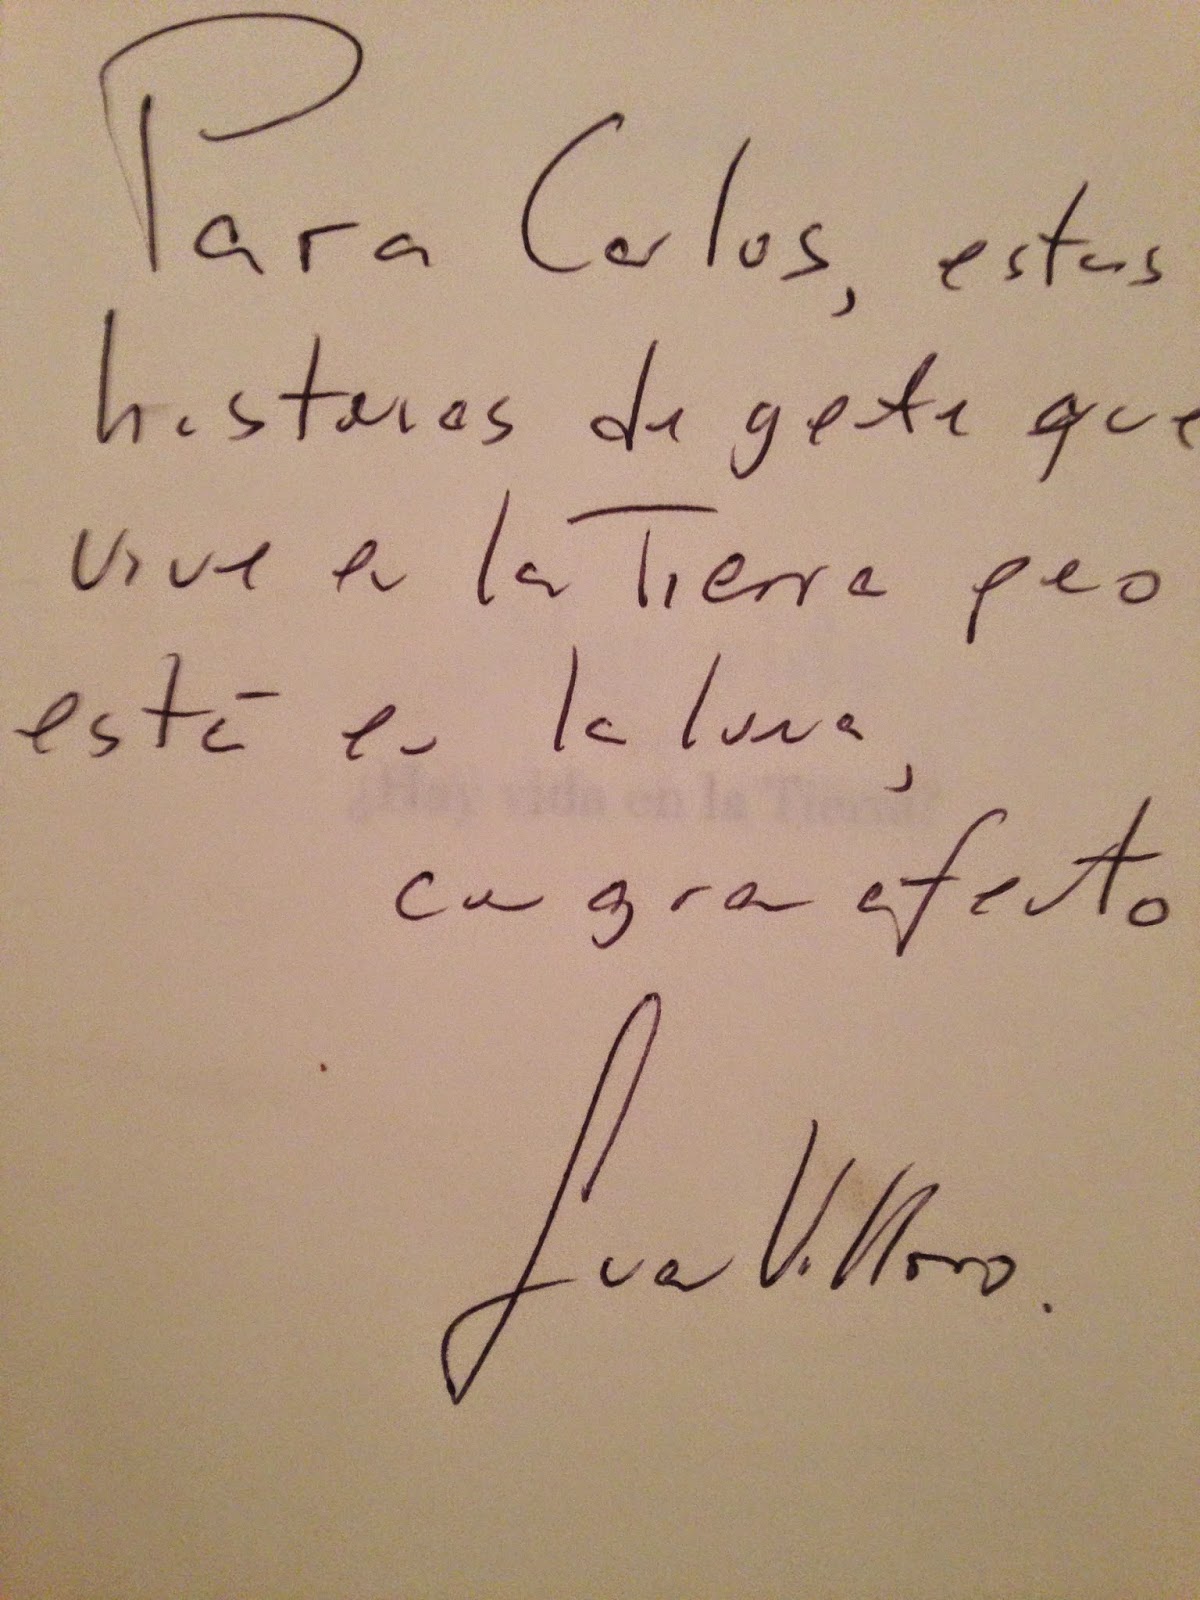 Para Carlos, estas
historias de gente que
vive en la Tierra pero
está en la luna,
¿Hay vida en la Tierra?
con gran afecto
Juan Villoro.